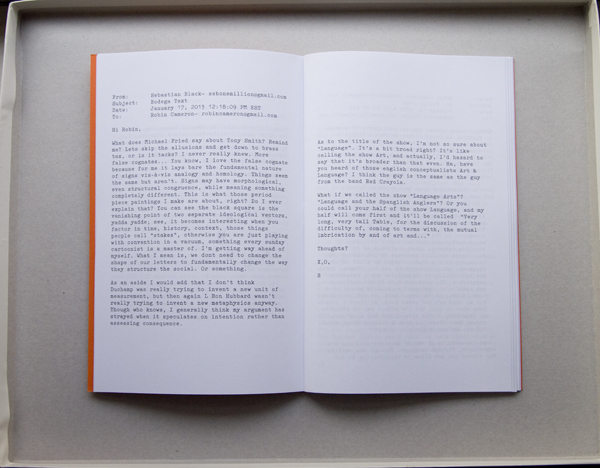 From: Sebastian Black- sebonemillion@gmail.com
Subject: Bodega Text
Date: January 17, 2013 12:18:09 PM EST
To: Robin Cameron- robincameron@gmail.com
Hi Robin,
What does Michael Fried say about Tony Smith? Remind
me? Lets skip the allusions and get down to brass
tax, or is it tacks? I never really knew. More
false cognates... You know, I love the false cognate
because for me it lays bare the fundamental nature
of signs vis-à-vis analogy and homology. Things seem
the same but aren't. Signs may have morphological,
even structural congruence, while meaning something
completely different. This is what those period
piece paintings I make are about, right? Do I ever
explain that? You can see the black square is the
vanishing point of two separate ideological vectors,
yadda yadda; see, it becomes interesting when you
factor in time, history, context, those things
people call "stakes", otherwise you are just playing
with convention in a vacuum, something every sunday
cartoonist is a master of. I'm getting way ahead of
myself. What I mean is, we dont need to change the
shape of our letters to fundamentally change the way
they structure the social. Or something.
As an aside I would add that I don't think
Duchamp was really trying to invent a new unit of
measurement, but then again L Ron Hubbard wasn't
really trying to invent a new metaphysics anyway.
Though who knows, I generally think my argument has
strayed when it speculates on intention rather than
assessing consequence.
As to the title of the show, I'm not so sure about
"Language". It's a bit broad right? It's like
calling the show Art, and actually, I'd hazard to
say that it's broader than that even. So, have
you heard of those english conceptualists Art &
Language? I think the guy is the same as the guy
from the band Red Crayola.
What if we called the show "Language Arts"?
"Language and the Spanglish Anglers"? Or you
could call your half of the show Language, and my
half will come first and it'll be called "Very
long, very tall Table, for the discussion of the
difficulty of, coming to terms with, the mutual
imbrication by and of art and..."
Thoughts?
X,O,
S